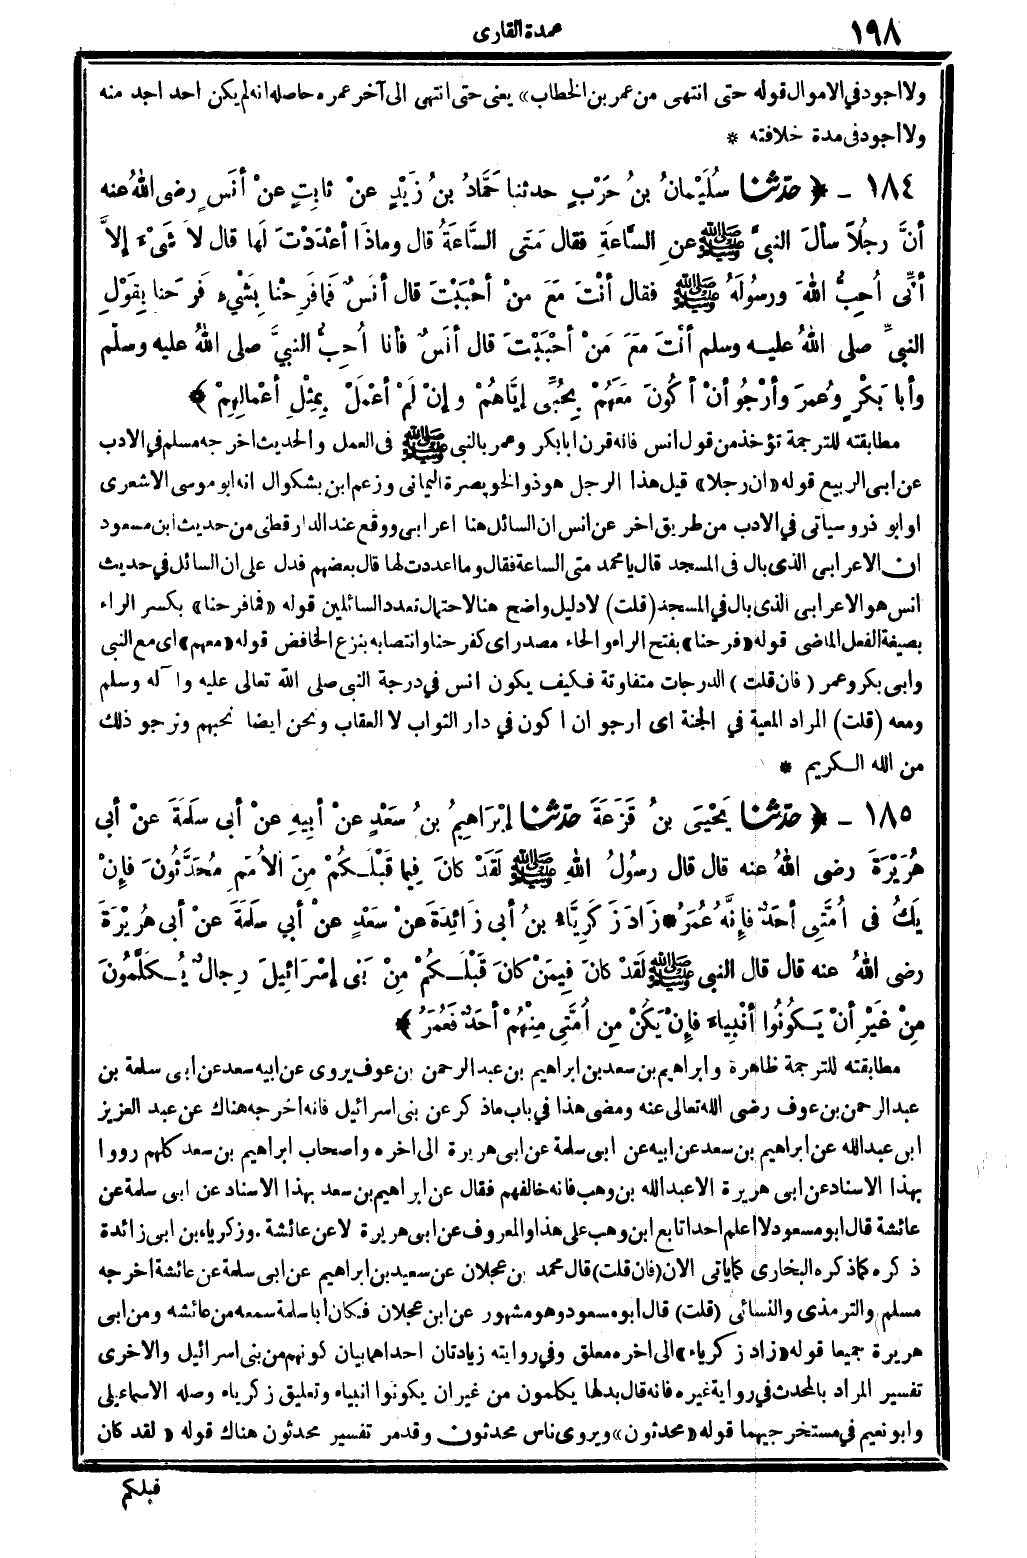 ١٩٨
عمدة القارى
ولا اجود في الاموال قوله حتى انتهى من عمر بن الخطاب» يعنى حتى انتهى الى آخر عمره حاصله انه لم يكن احد اجد منه
ولا اجود فى مدة خلافته *
١٨٤ - ﴿ حَدَّثَنَا سُلَيْمَانُ بنُ حَرْبٍ حدثنا حَمَّادُ بنُ زَيْدٍ عنْ ثابِتٍ عنْ أنَسٍ رضى اللهُ عنه
أنَّ رجُلاً سألَ النبيَّ ﷺ عنِ السَّاعةِ فقال مَتَى السَّاعَةُ قال وماذَا أعْدَدْتَ لَها قال لاَ شَىْءَ إلاَّ
أنِّى أُحِبُّ اللهَ ورسُولَهُ ﷺ فقال أنْتَ مَعَ منْ أحْبَبْتَ قال أنَسٌ فَمَا فَرِحْنا بِشَيْءٍ فَرَحَنا بِقَوْلِ
النبيِّ صلى اللهُ عليه وسلم أنْتَ مَعَ مَنْ أحْبَبْتَ قال أنَسٌ فأنا أُحِبُّ النبيَّ صلى اللهُ عليه وسلم
وأبا بَكْرٍ وعُمرَ وأرْجُو أنْ أكُونَ مَعَهُمْ بِحُبِّى إيَّاهُمْ وإنْ لَمْ أعْمَلْ بِمِثْلِ أعْمالِهِمْ ﴾
مطابقته للترجمة تؤخذ من قول انس فانه قرن ابا بكر وعمر بالنبى ﷺ فى العمل والحديث اخرجه مسلم في الادب
عن ابى الربيع قوله «ان رجلا» قيل هذا الرجل هو ذو الخويصرة اليمانى وزعم ابن بشكوال انه ابو موسى الاشعرى
او ابو ذر وسياتى في الادب من طريق اخر عن انس ان السائل هنا اعرابى ووقع عند الدارقطنى من حديث ابن مسعود
ان الاعرابى الذى بال فى المسجد قال يا محمد متى الساعة فقال وما اعددت لها قال بعضهم فدل على ان السائل في حديث
انس هو الاعرابى الذى بال في المسجد (قلت) لا دليل واضح هنا لاحتمال تعدد السائلين قوله «فما فرحنا» بكسر الراء
بصيغة الفعل الماضى قوله «فرحنا» بفتح الراء والحاء مصدر اى كفرحنا وانتصابه بنزع الخافض قوله «معهم» اى مع النبى
وابى بكر وعمر (فان قلت) الدرجات متفاوتة فكيف يكون انس في درجة النبى صلى الله تعالى عليه وآله وسلم
ومعه (قلت) المراد المعية في الجنة اى ارجو ان اكون في دار الثواب لا العقاب ونحن ايضا نحبهم ونرجو ذلك
من الله الكريم *
١٨٥ - ﴿ حَدَّثَنَا يَحْيَى بنُ قَزَعَةَ حَدَّثَنَا إبْرَاهِيمُ بنُ سَعْدٍ عنْ أبيهِ عنْ أبى سلَمَةَ عنْ أبى
هُرَيْرَةَ رضى اللهُ عنه قال قال رسُولُ اللهِ ﷺ لَقَدْ كانَ فِيما قَبْلَكُمْ مِنَ الأُمَمِ مُحَدَّثُونَ فإنْ
يَكُ فى أُمَّتِى أحَدٌ فإنَّهُ عُمَرُ * زَادَ زَكَرِيَّاءُ بنُ أبى زَائِدَةَ عنْ سَعْدٍ عنْ أبي سلَمَةَ عنْ أبى هُرَيْرَةَ
رضى اللهُ عنه قال قال النبي ﷺ لَقَدْ كانَ فِيمَنْ كانَ قَبْلَكُمْ مِنْ بَنِى إسْرَائِيلَ رِجالٌ يُكَلَّمُونَ
مِنْ غَيْرِ أنْ يَكُونُوا أنْبِياءَ فإنْ يَكُنْ مِن أُمَّتِى مِنْهُمْ أحَدٌ فَعُمَرُ ﴾
مطابقته للترجمة ظاهرة وابراهيم بن سعد بن ابراهيم بن عبد الرحمن بن عوف يروى عن ابيه سعد عن ابى سلمة بن
عبد الرحمن بن عوف رضى الله تعالى عنه ومضى هذا في باب ما ذكر عن بنى اسرائيل فانه اخرجه هناك عن عبد العزيز
ابن عبد الله عن ابراهيم بن سعد عن ابيه عن ابى سلمة عن ابى هريرة الى اخره واصحاب ابراهيم بن سعد كلهم رووا
بهذا الاسناد عن ابى هريرة الا عبد الله بن وهب فانه خالفهم فقال عن ابراهيم بن سعد بهذا الاسناد عن ابى سلمة عن
عائشة قال ابو مسعود لا اعلم احدا تابع ابن وهب على هذا والمعروف عن ابى هريرة لا عن عائشة . وزكرياء بن ابى زائدة
ذكره كما ذكره البخارى كما ياتى الان (فان قلت) قال محمد بن عجلان عن سعيد بن ابراهيم عن ابى سلمة عن عائشة اخرجه
مسلم والترمذى والنسائى (قلت) قال ابو مسعود وهو مشهور عن ابن عجلان فكان ابا سلمة سمعه من عائشه ومن ابى
هريرة جميعا قوله «زاد زكرياء» الى اخره معلق وفي روايته زيادتان احداهما بيان كونهم من بنى اسرائيل والاخرى
تفسير المراد بالمحدث في رواية غيره فانه قال بدلها يكلمون من غير ان يكونوا انبياء وتعليق زكرياء وصله الاسماعيلى
وابو نعيم في مستخرجيهما قوله «محدثون» ويروى ناس محدثون وقد مر تفسير محدثون هناك قوله « لقد كان
قبلكم